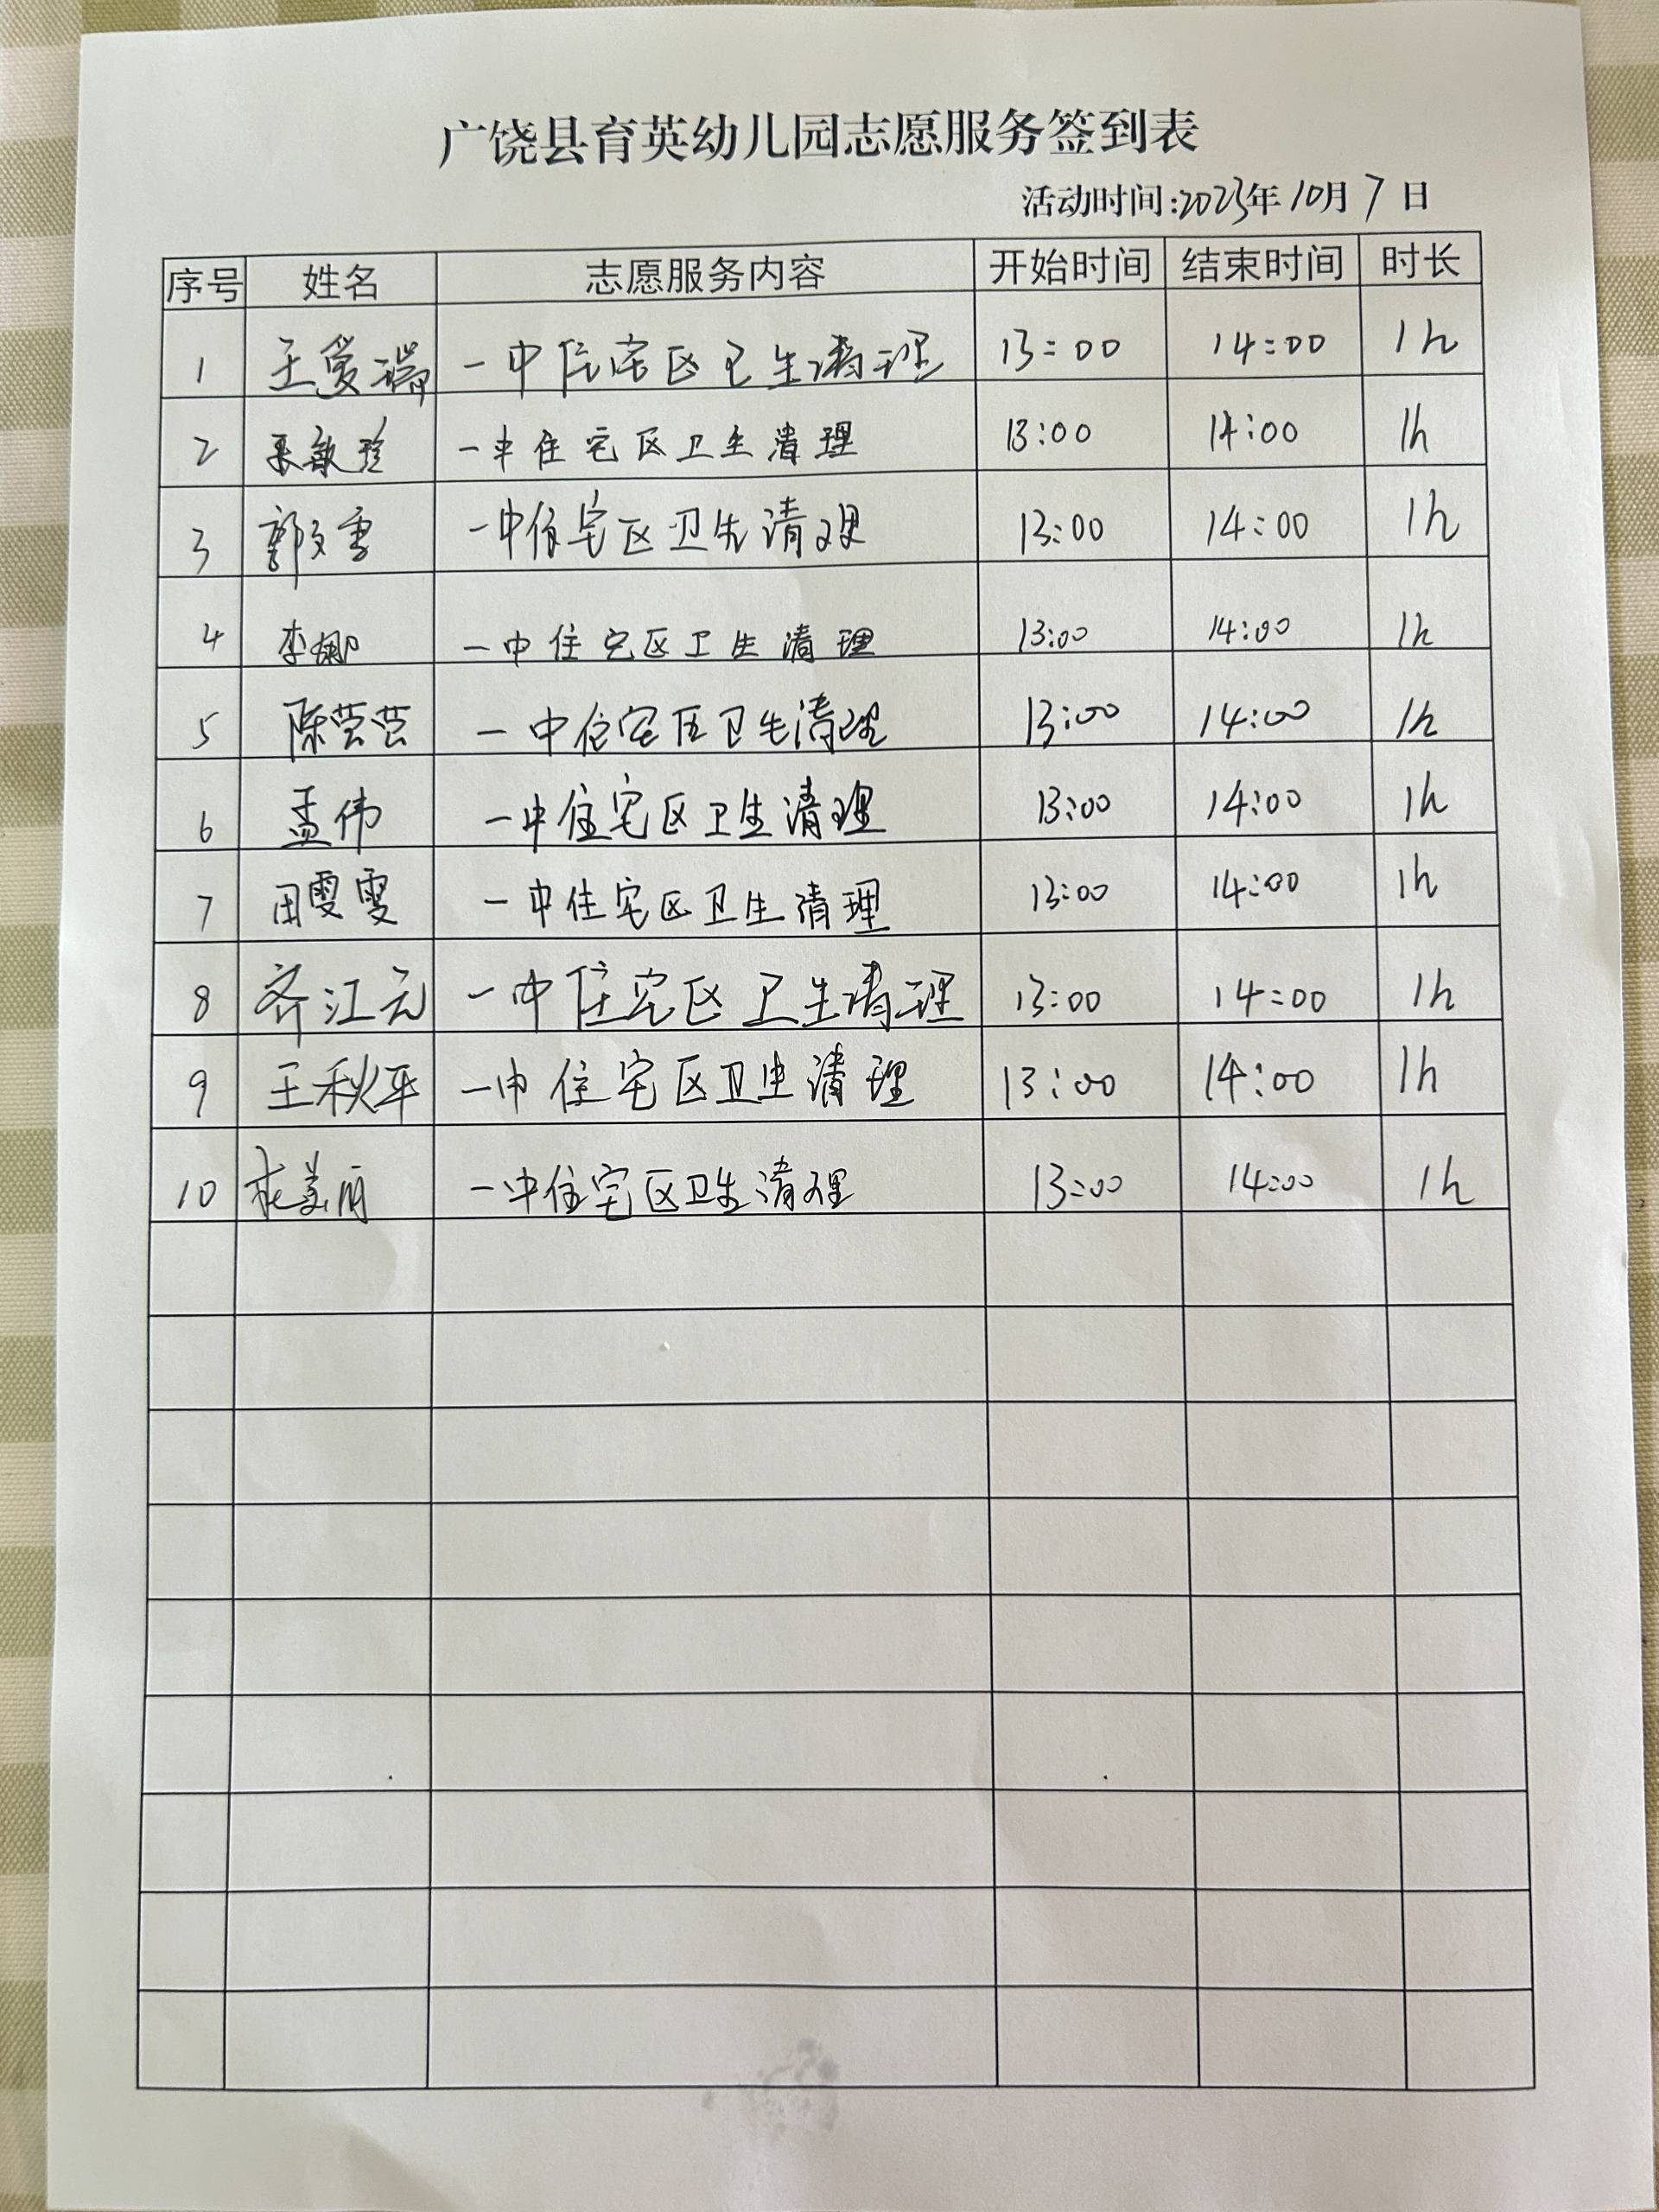 广饶县育英幼儿园志愿服务签到表
活动时间:2023年10月7日
序号 姓名 志愿服务内容 开始时间 结束时间 时长
1 王爱瑞 一中住宅区卫生清理 13:00 14:00 1h
2 敏珍 一中住宅区卫生清理 13:00 14:00 1h
3 郭文雪 一中住宅区卫生清理 13:00 14:00 1h
4 李娜 一中住宅区卫生清理 13:00 14:00 1h
5 陈芸芸 一中住宅区卫生清理 13:00 14:00 1h
6 孟伟 一中住宅区卫生清理 13:00 14:00 1h
7 田雯雯 一中住宅区卫生清理 13:00 14:00 1h
8 齐江元 一中住宅区卫生清理 13:00 14:00 1h
9 王秋平 一中住宅区卫生清理 13:00 14:00 1h
10 美丽 一中住宅区卫生清理 13:00 14:00 1h